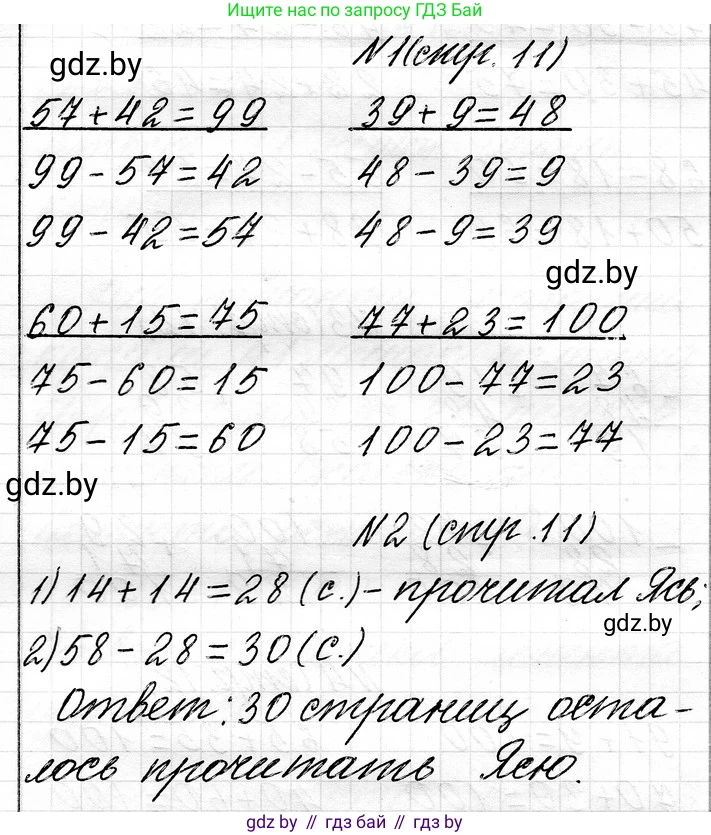 Ищите нас по запросу ГДЗ Бай
gdz.by
N1(стр. 11)
57+42=99 39+9=48
99-57=42 48-39=9
99-42=57 48-9=39
gdz.by
60+15=75 77+23=100
75-60=15 100-77=23
75-15=60 100-23=77
gdz.by
N2 (стр.11)
1)14+14=28(с.)-прочитал Ясь;
gdz.by
2)58-28=30(с.)
Ответ: 30 страниц оста-
лось прочитать Ясю.
gdz by // гдз бай // gdz by